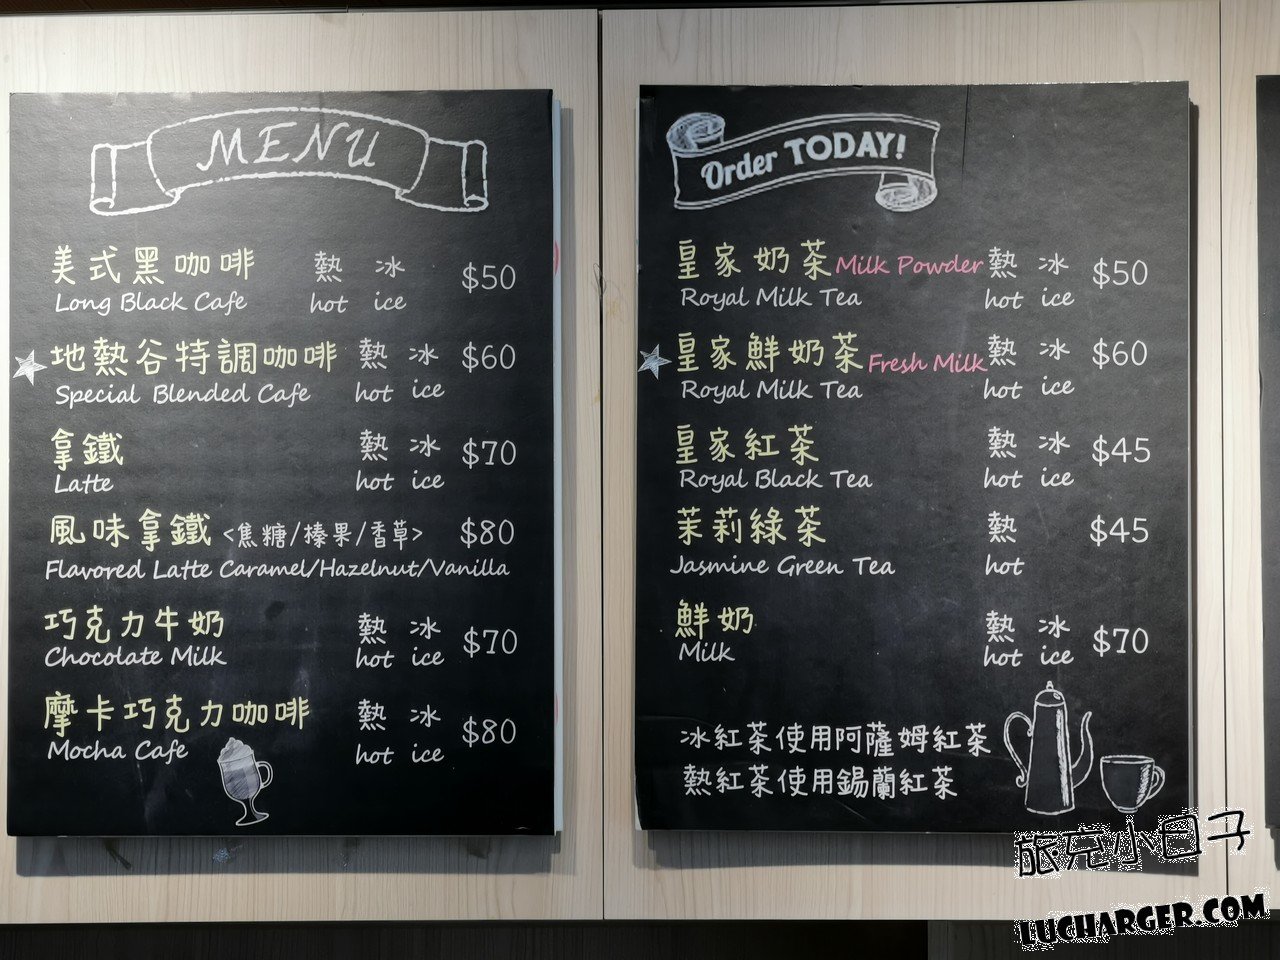 MENU
美式黑咖啡 熱 冰 $50
Long Black Cafe hot ice
地熱谷特調咖啡 熱 冰 $60
Special Blended Cafe hot ice
拿鐵 熱 冰 $70
Latte hot ice
風味拿鐵 <焦糖/榛果/香草> $80
Flavored Latte Caramel/Hazelnut/Vanilla
巧克力牛奶 熱 冰 $70
Chocolate Milk hot ice
摩卡巧克力咖啡 熱 冰 $80
Mocha Cafe hot ice
Order TODAY!
皇家奶茶 Milk Powder 熱 冰 $50
Royal Milk Tea hot ice
皇家鮮奶茶 Fresh Milk 熱 冰 $60
Royal Milk Tea hot ice
皇家紅茶 熱 冰 $45
Royal Black Tea hot ice
茉莉綠茶 熱 $45
Jasmine Green Tea hot
鮮奶 熱 冰 $70
Milk hot ice
冰紅茶使用阿薩姆紅茶
熱紅茶使用錫蘭紅茶
旅充小日子
LUCHARGER.COM